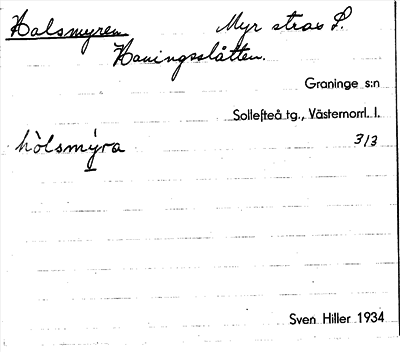 Halsmyren Myr strax S.
Haningsslåtten.
Graninge s:n
Sollefteå tg., Västernorrl. l.
hòlsmýra 3/3
Sven Hiller 1934